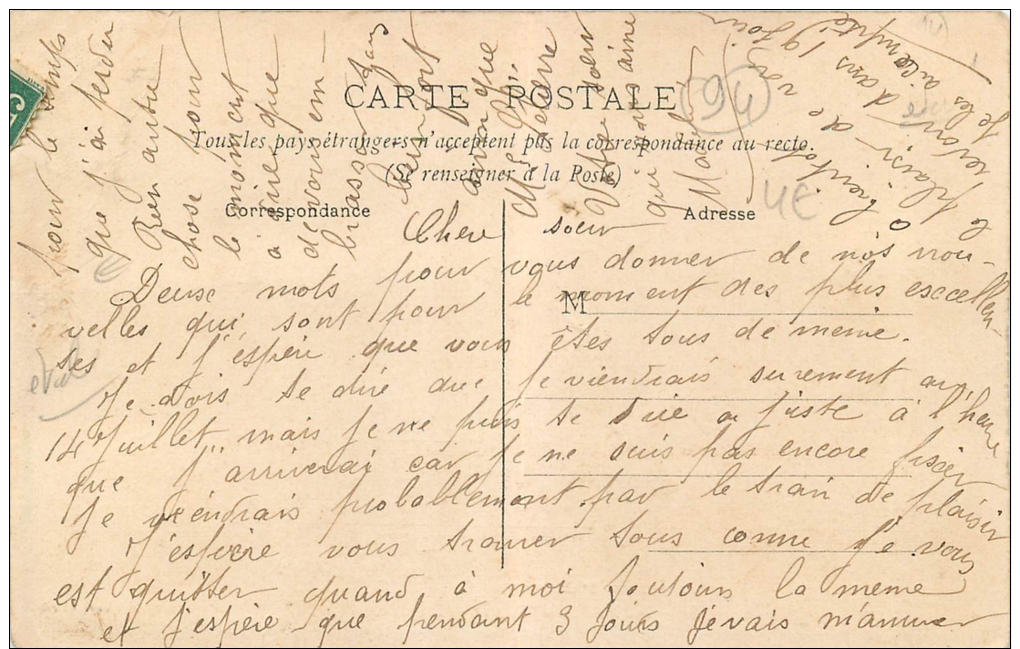 CARTE POSTALE
Tous les pays étrangers n'acceptent pas la correspondance au recto.
(Se renseigner à la Poste)
Correspondance
Adresse
M
94
Chere soeur
Deuse mots pour vous donner de nos nou-
velles qui sont pour le moment des plus esecellen-
ses et j'espère que vous êtes tous de meme.
Je dois te dire que je viendrais surement au
14 Juillet mais je ne puis te dire au juste à l'heure
que j'arriverai car je ne suis pas encore fiscér
je viendrais probablement par le train de plaisir
J'espère vous trouver tous comme je vous
est quitter quand à moi toujours la meme
et j'espère que pendant 3 jours je vais m'amuser
pour le temps
que j'ai perdu
Rien autre
chose pour
le moment
à dire que
de vous em-
brasser
bien fort
ainsi que
Pierre
Votre soeur
qui vous aime
à bientôt
le plaisir de vous